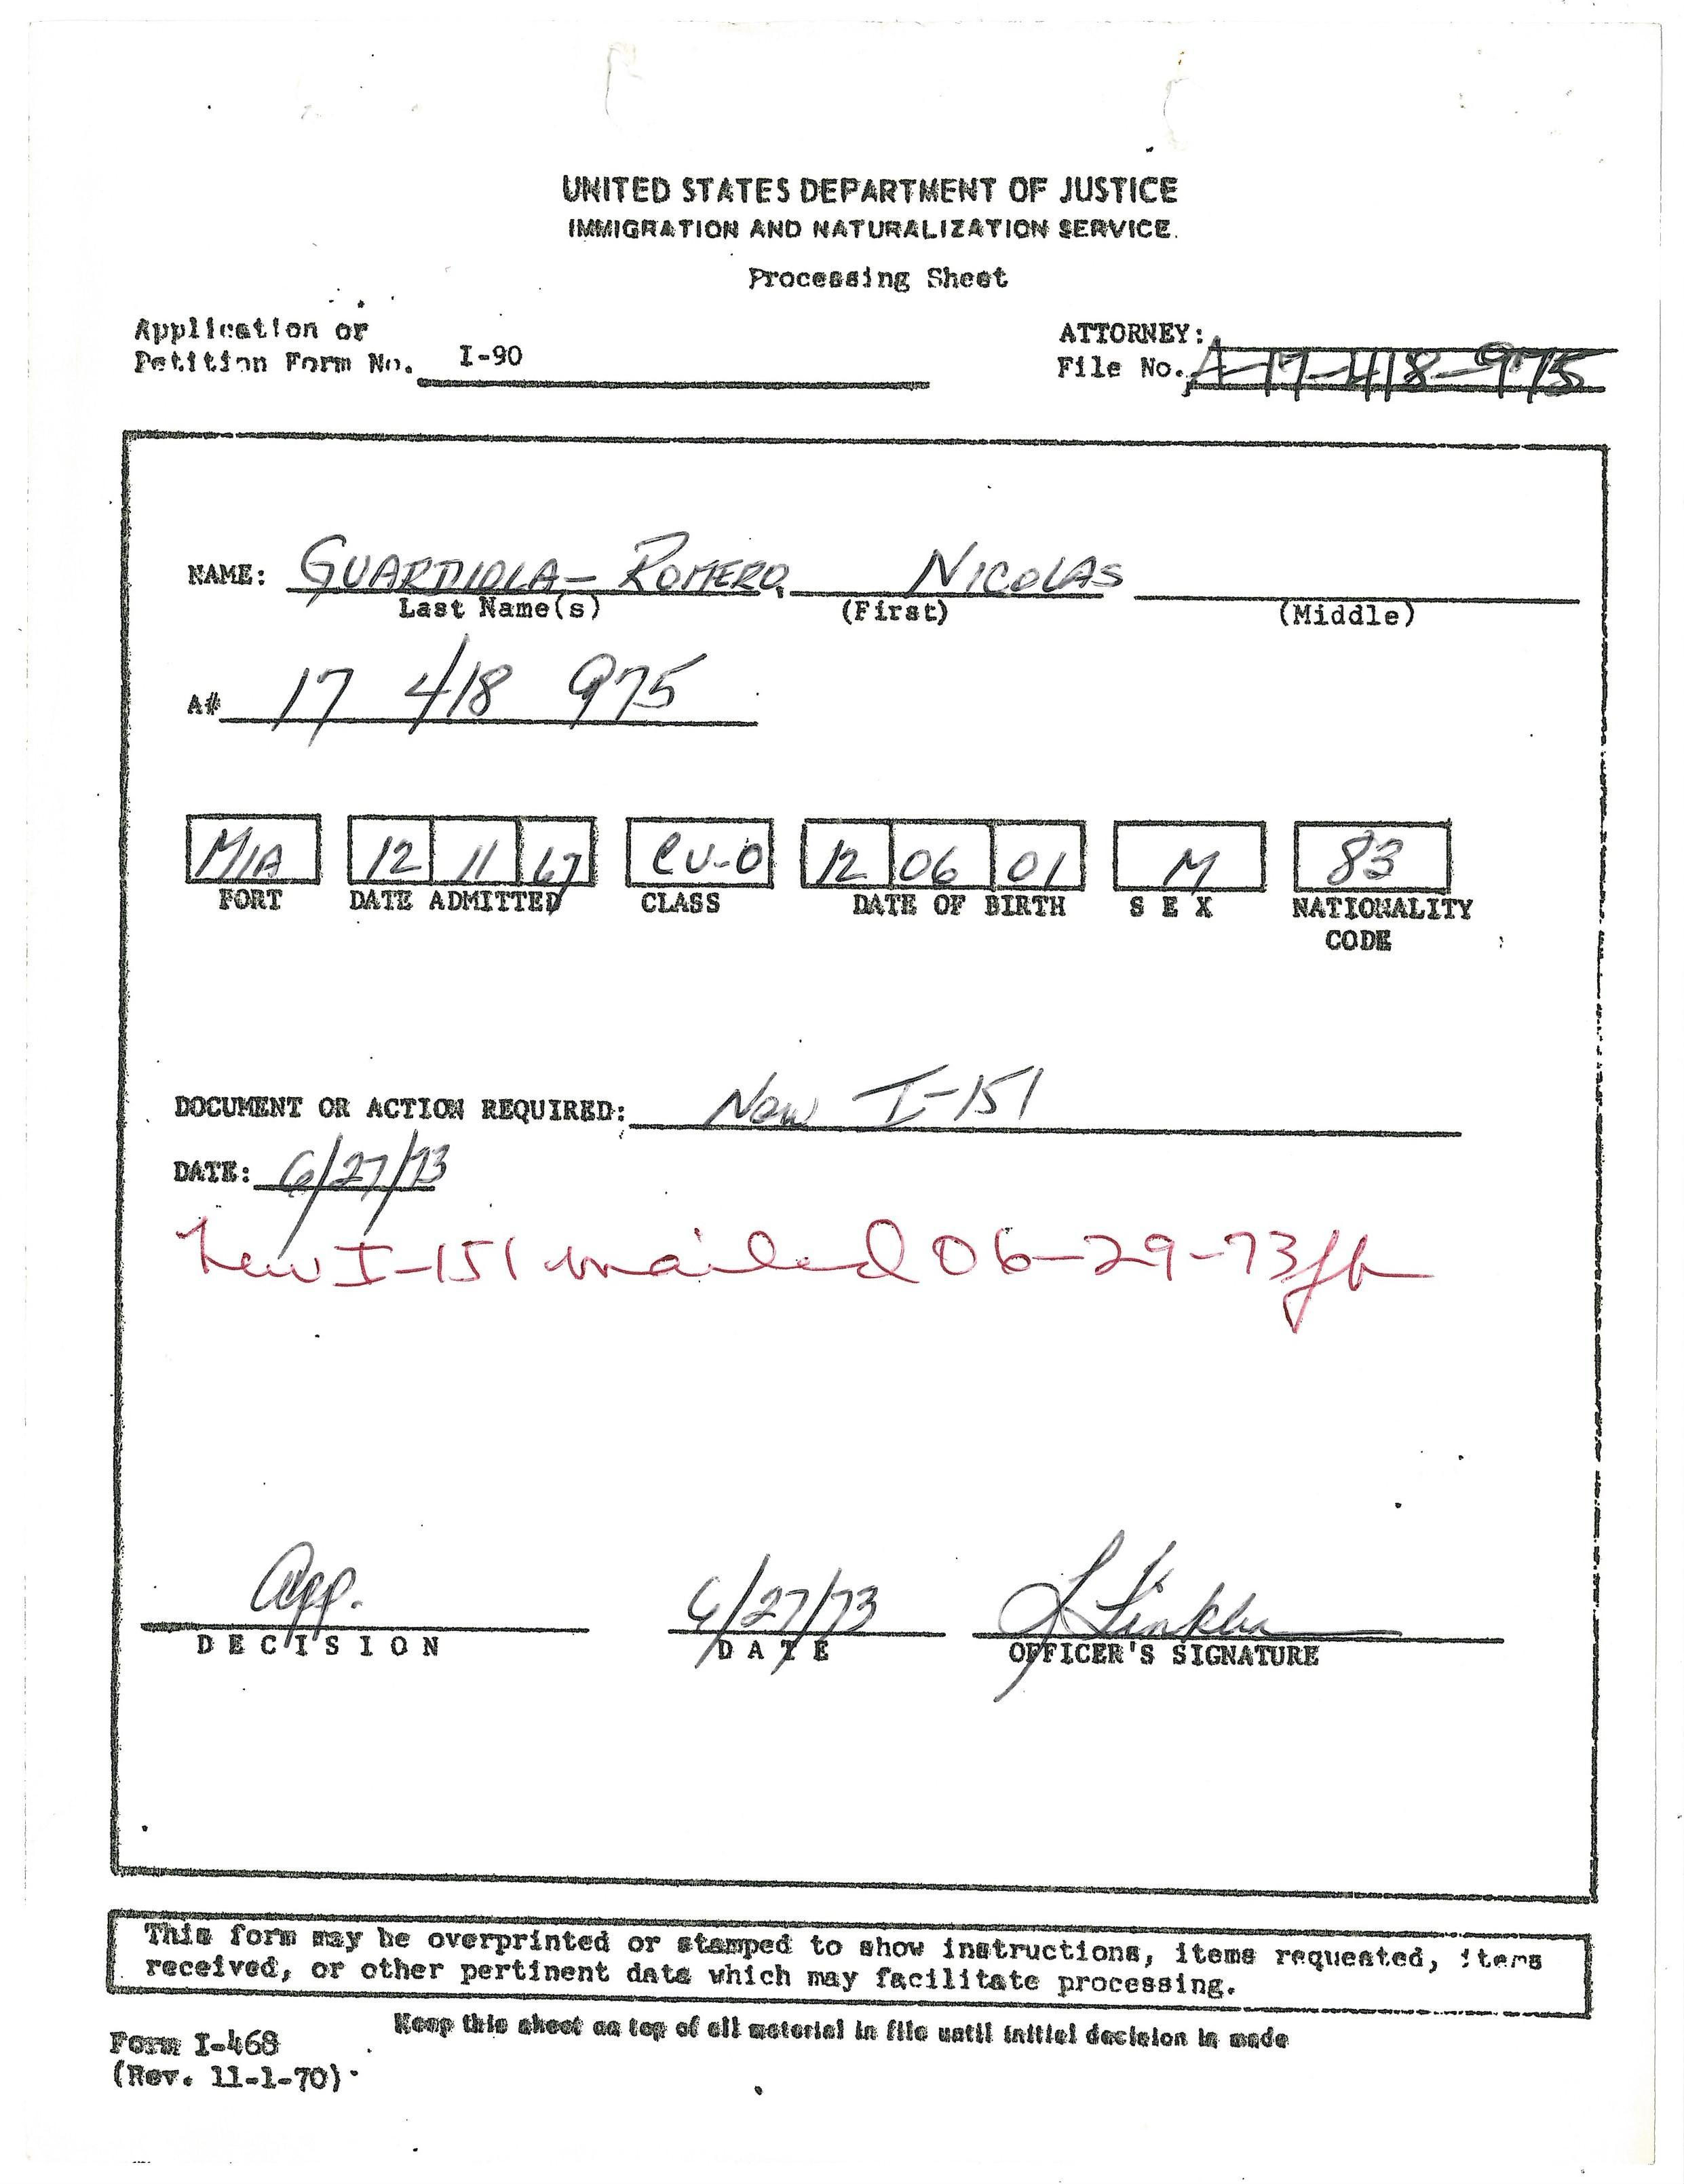 UNITED STATES DEPARTMENT OF JUSTICE
IMMIGRATION AND NATURALIZATION SERVICE
Processing Sheet
Application or
Petition Form No. I-90
ATTORNEY:
File No. A-17-418-975
NAME: GUARDIOLA-ROMERO, NICOLAS
Last Name(s) (First) (Middle)
A# 17 418 975
MIA 12 11 67 CU-0 12 06 01 M 83
PORT DATE ADMITTED CLASS DATE OF BIRTH SEX NATIONALITY
CODE
DOCUMENT OR ACTION REQUIRED: New I-151
DATE: 6/27/73
New I-151 mailed 06-29-73
App. 6/27/73
DECISION DATE OFFICER'S SIGNATURE
This form may be overprinted or stamped to show instructions, items requested, items
received, or other pertinent data which may facilitate processing.
Keep this sheet on top of all material in file until initial decision is made
Form I-468
(Rev. 11-1-70)